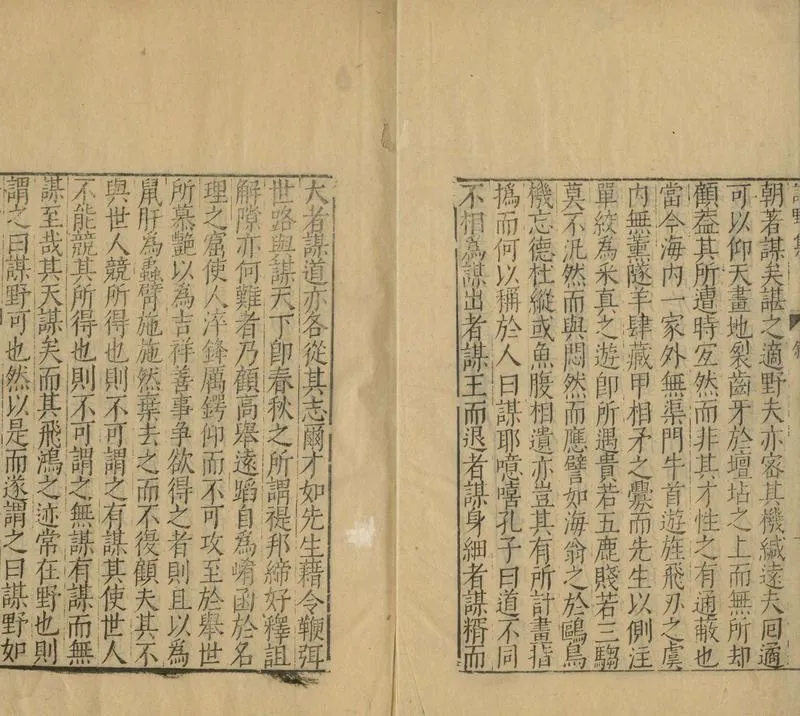 朝著謀矣諶之適野夫亦密其機緘遠夫囘適
可以仰天畫地裂齒牙於壇坫之上而無所却
顧蓋其所遭時㝔然而非其才性之有通蔽也
當今海内一家外無渠門牛首遊旌飛刃之虞
内無薰隧羊肆藏甲相矛之釁而先生以側注
單絞為采真之遊卽所遇貴若五鹿賤若三騶
莫不汎然而與悶然而應譬如海翁之於鷗鳥
機忘德杜縱或魚腹相遺亦豈其有所計畫指
撝而何以稱於人曰謀耶噫嘻孔子曰道不同
不相為謀出者謀王而退者謀身細者謀稰而
大者謀道亦各從其志爾才如先生藉令鞭弭
世路與謀天下卽春秋之所謂褆邦締好釋詛
解隙亦何難者乃顧高舉遠蹈自為崤函於名
理之窟使人淬鋒厲鍔仰而不可攻至於舉世
所慕艷以為吉祥善事爭欲得之者則且以為
鼠肝為蟲臂施施然棄去之而不復顧夫其不
與世人競所得也則不可謂之有謀其使世人
不能競其所得也則不可謂之無謀有謀而無
謀至哉其天謀矣而其飛鴻之迹常在野也則
謂之曰謀野可也然以是而遂謂之曰謀野如